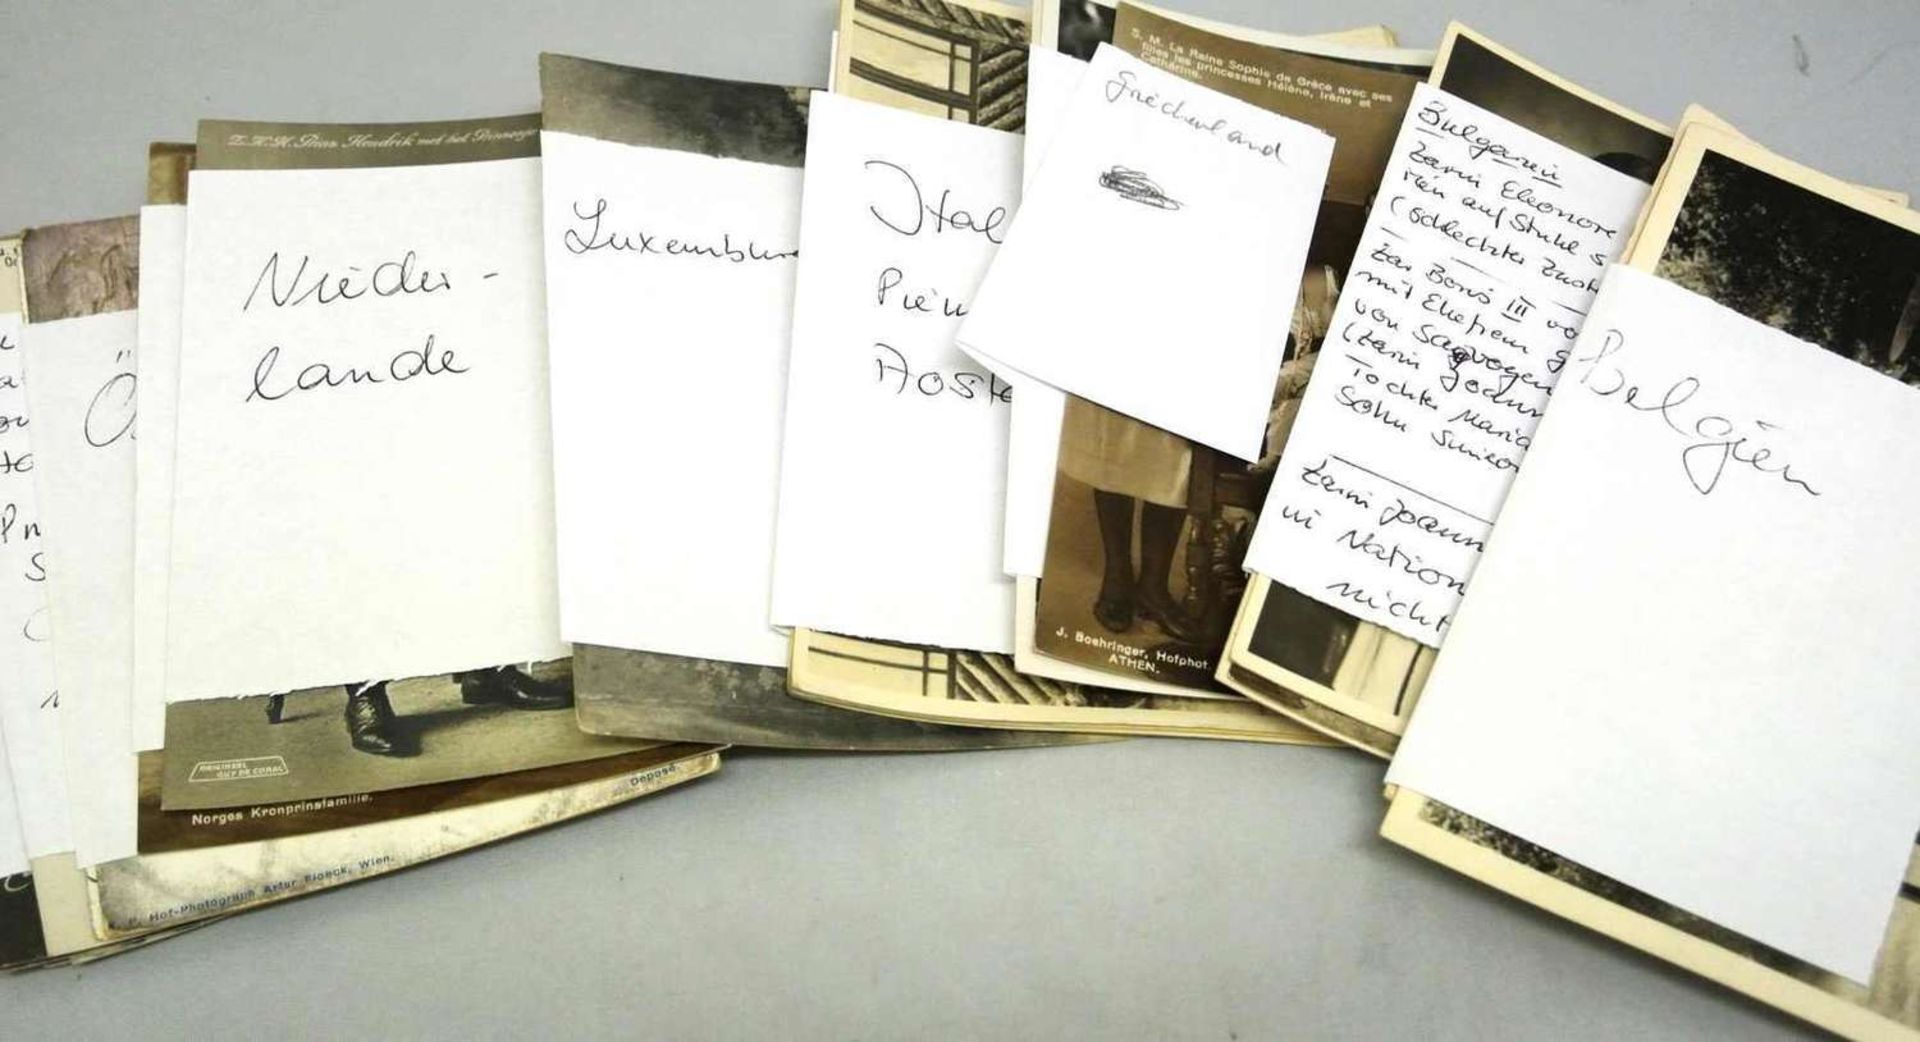 Ö
Z.K.H. Prins Hendrik met het Prinsesje
Nieder-
lande
ORIGINEEL
GUY DE CORAL
Norges Kronprinsfamilie.
Deposé.
Hof-Photograph Artur Floeck, Wien.
Luxemburg
Ital
Piem
Aoste
S. M. La Reine Sophie de Grèce avec ses
filles les princesses Hélène, Irène et
Cathérine.
Griechenland
J. Boehringer, Hofphot.
ATHEN.
Bulgarien
Zarin Eleonore
auf Stuhl s
(schlechter Zust
Zar Boris III vo
mit Ehefrau G
von Savoyen
(Zarin Joann
Tochter Maria
Sohn Simeon
Zarin Joann
in Nation
nicht
Belgien